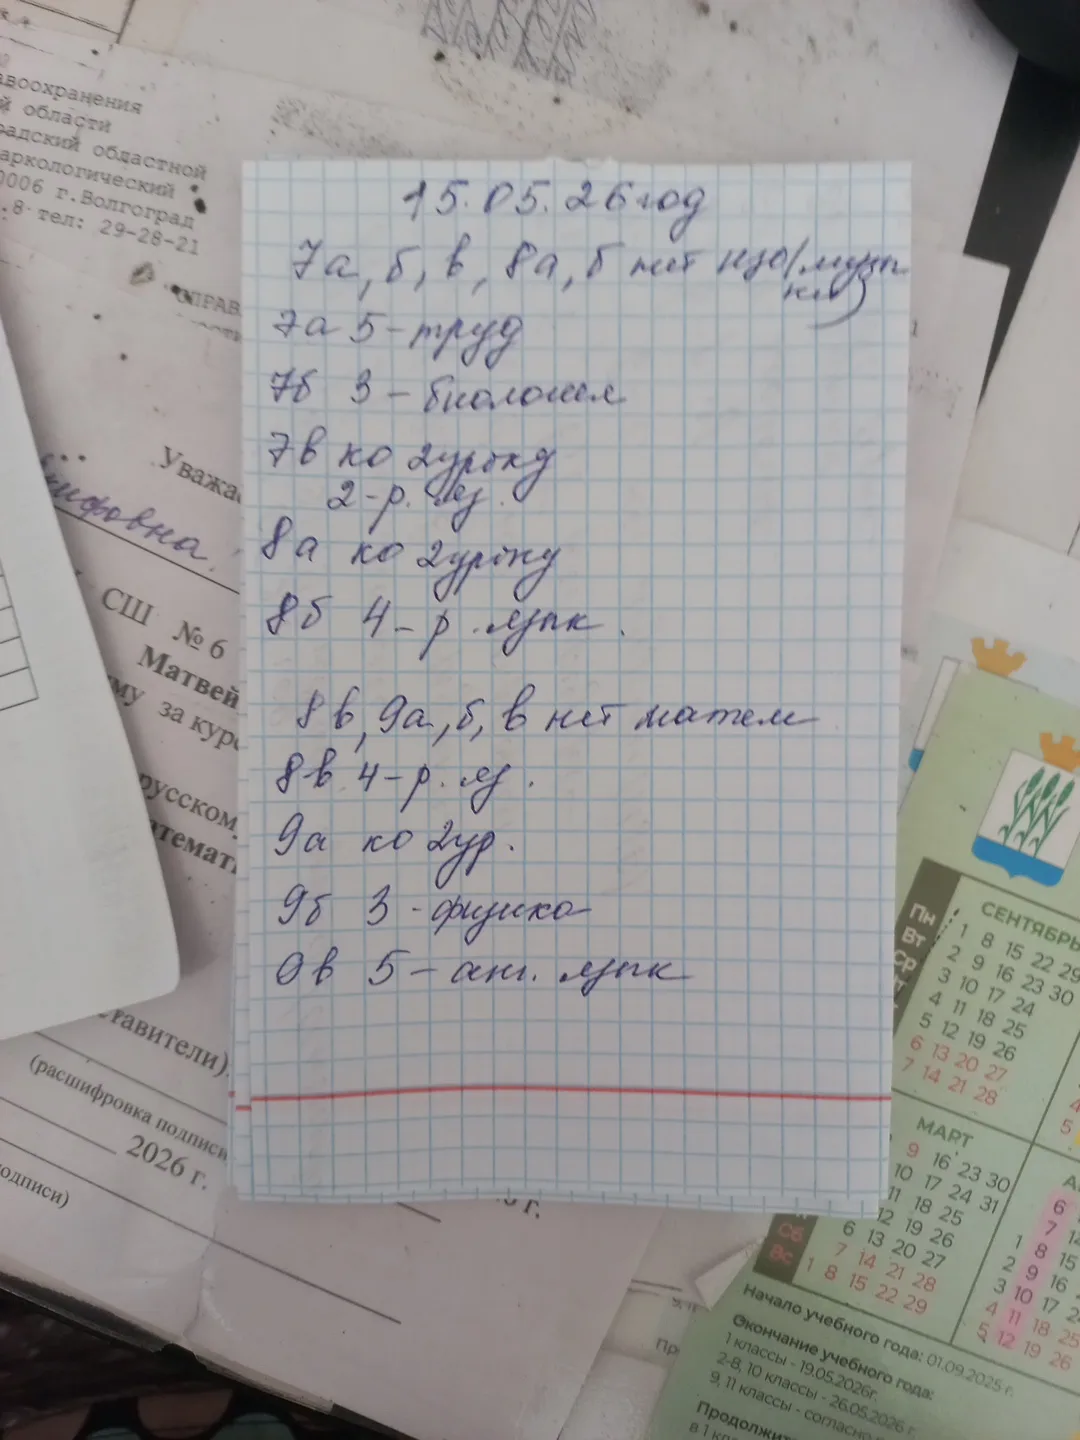 авоохранения
й области
радский областной
аркологический
0006 г.Волгоград
8 тел: 29-28-21
СПРАВ
15.05.26 год
7а, б, в, 8а, б нет изо (музы
ки)
7а 5 - труд
7б 3 - биология
7в ко 2 уроку
2 - р. яз.
8а ко 2 уроку
8б 4 - р. язык.
8в, 9а, б, в нет матем
8в 4 - р. яз.
9а ко 2 ур.
9б 3 - физика
9в 5 - анг. язык
Уважа
ифовна.
СШ № 6
Матвей
му за курс
русском
атемат
ставители)
(расшифровка подписи
2026 г.
одписи)
г.
СЕНТЯБРЬ
Пн 1 8 15 22 29
Вт 2 9 16 23 30
Ср 3 10 17 24
4 11 18 25
5 12 19 26
6 13 20 27
7 14 21 28
МАРТ
9 16 23 30
10 17 24 31
11 18 25
12 19 26
6 13 20 27
Сб 7 14 21 28
Вс 1 8 15 22 29
А
6
7 14
1 8 15
2 9 16
3 10 17 24
4 11 18 25
5 12 19 26
Начало учебного года: 01.09.2025 г.
Окончание учебного года:
1 классы - 19.05.2026г.
2-8, 10 классы - 26.05.2026 г.
9, 11 классы - согласно
Продолжит
в 1 кла